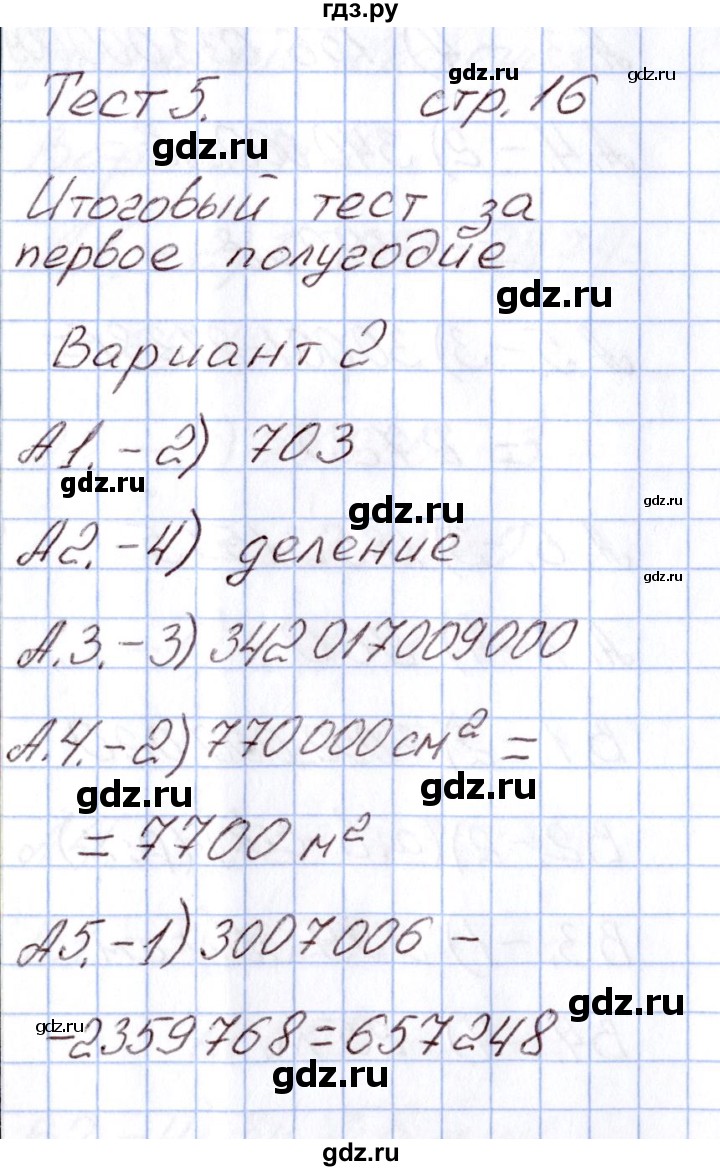 гдз.ру
Тест 5. стр. 16
gdz.ru
gdz.ru
gdz.ru
Итоговый тест за
первое полугодие
gdz.ru
Вариант 2
А1. - 2) 703
gdz.ru
gdz.ru
gdz.ru
А2. - 4) деление
gdz.ru
А.3. - 3) 342017009000
А.4. - 2) 770000 см² =
gdz.ru
gdz.ru
= 7700 м²
А5. - 1) 3007006 -
gdz.ru
gdz.ru
- 2359768 = 657248
gdz.ru
gdz.ru